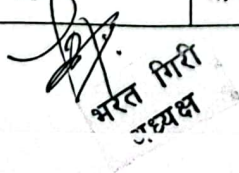 भरत गिरी
अध्यक्ष